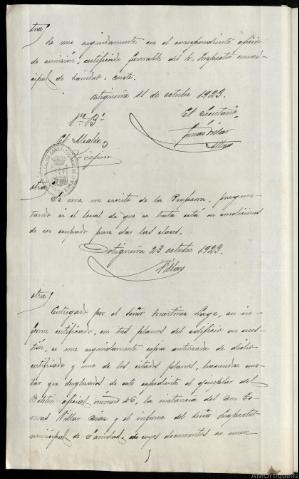 otra/
Se une seguidamente en el correspondiente oficio
de remisión, certificado favorable del Sr. Inspector munici-
pal de Sanidad. Conste.
Ortigueira 11 de octubre 1923.
Vº Bº
El Alcalde,
El Secretario
otra/
Se une un escrito de la Profesora, pregun-
tando si el local de que se trata está en condiciones
de ser ocupado para dar las clases.
Ortigueira 23 octubre 1923.
otra/
Entregado por el Señor Martínez Lage, un in-
forme certificado, con tres planos del edificio en cues-
tión, se une seguidamente copia autorizada de dicho
certificado y uno de los citados planos, haciendo cons-
tar que desglosados de este expediente el ejemplar del
Boletín oficial número 26, la instancia del Don To-
más Villar y el informe del Señor Inspector
municipal de Sanidad, de cuyos documentos se